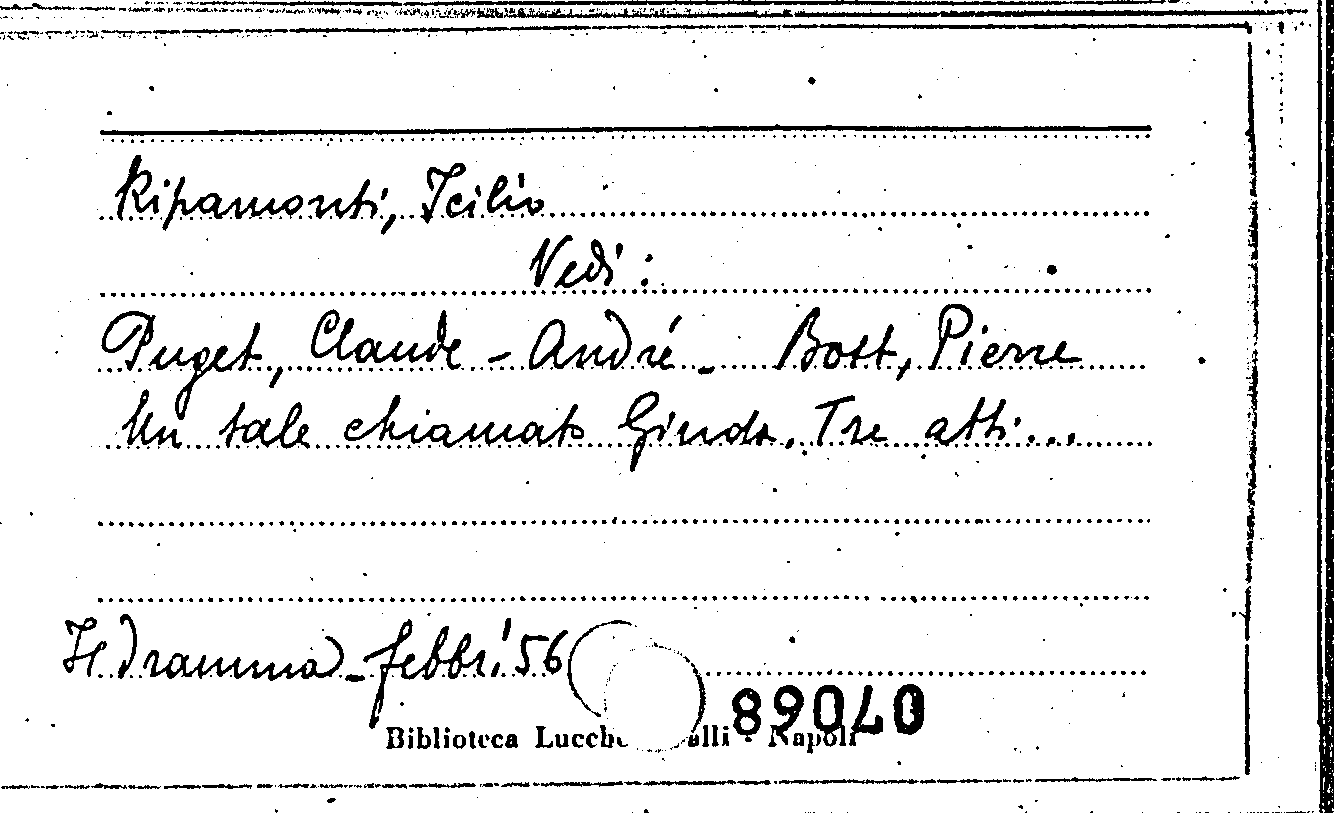 Ripamonti, Icilio
Vedi:
Puget, Claude - André - Bost, Pierre
Un tale chiamato Giuda. Tre atti...
Il dramma - febbr. '56
89040
Biblioteca Lucche alli - Napoli